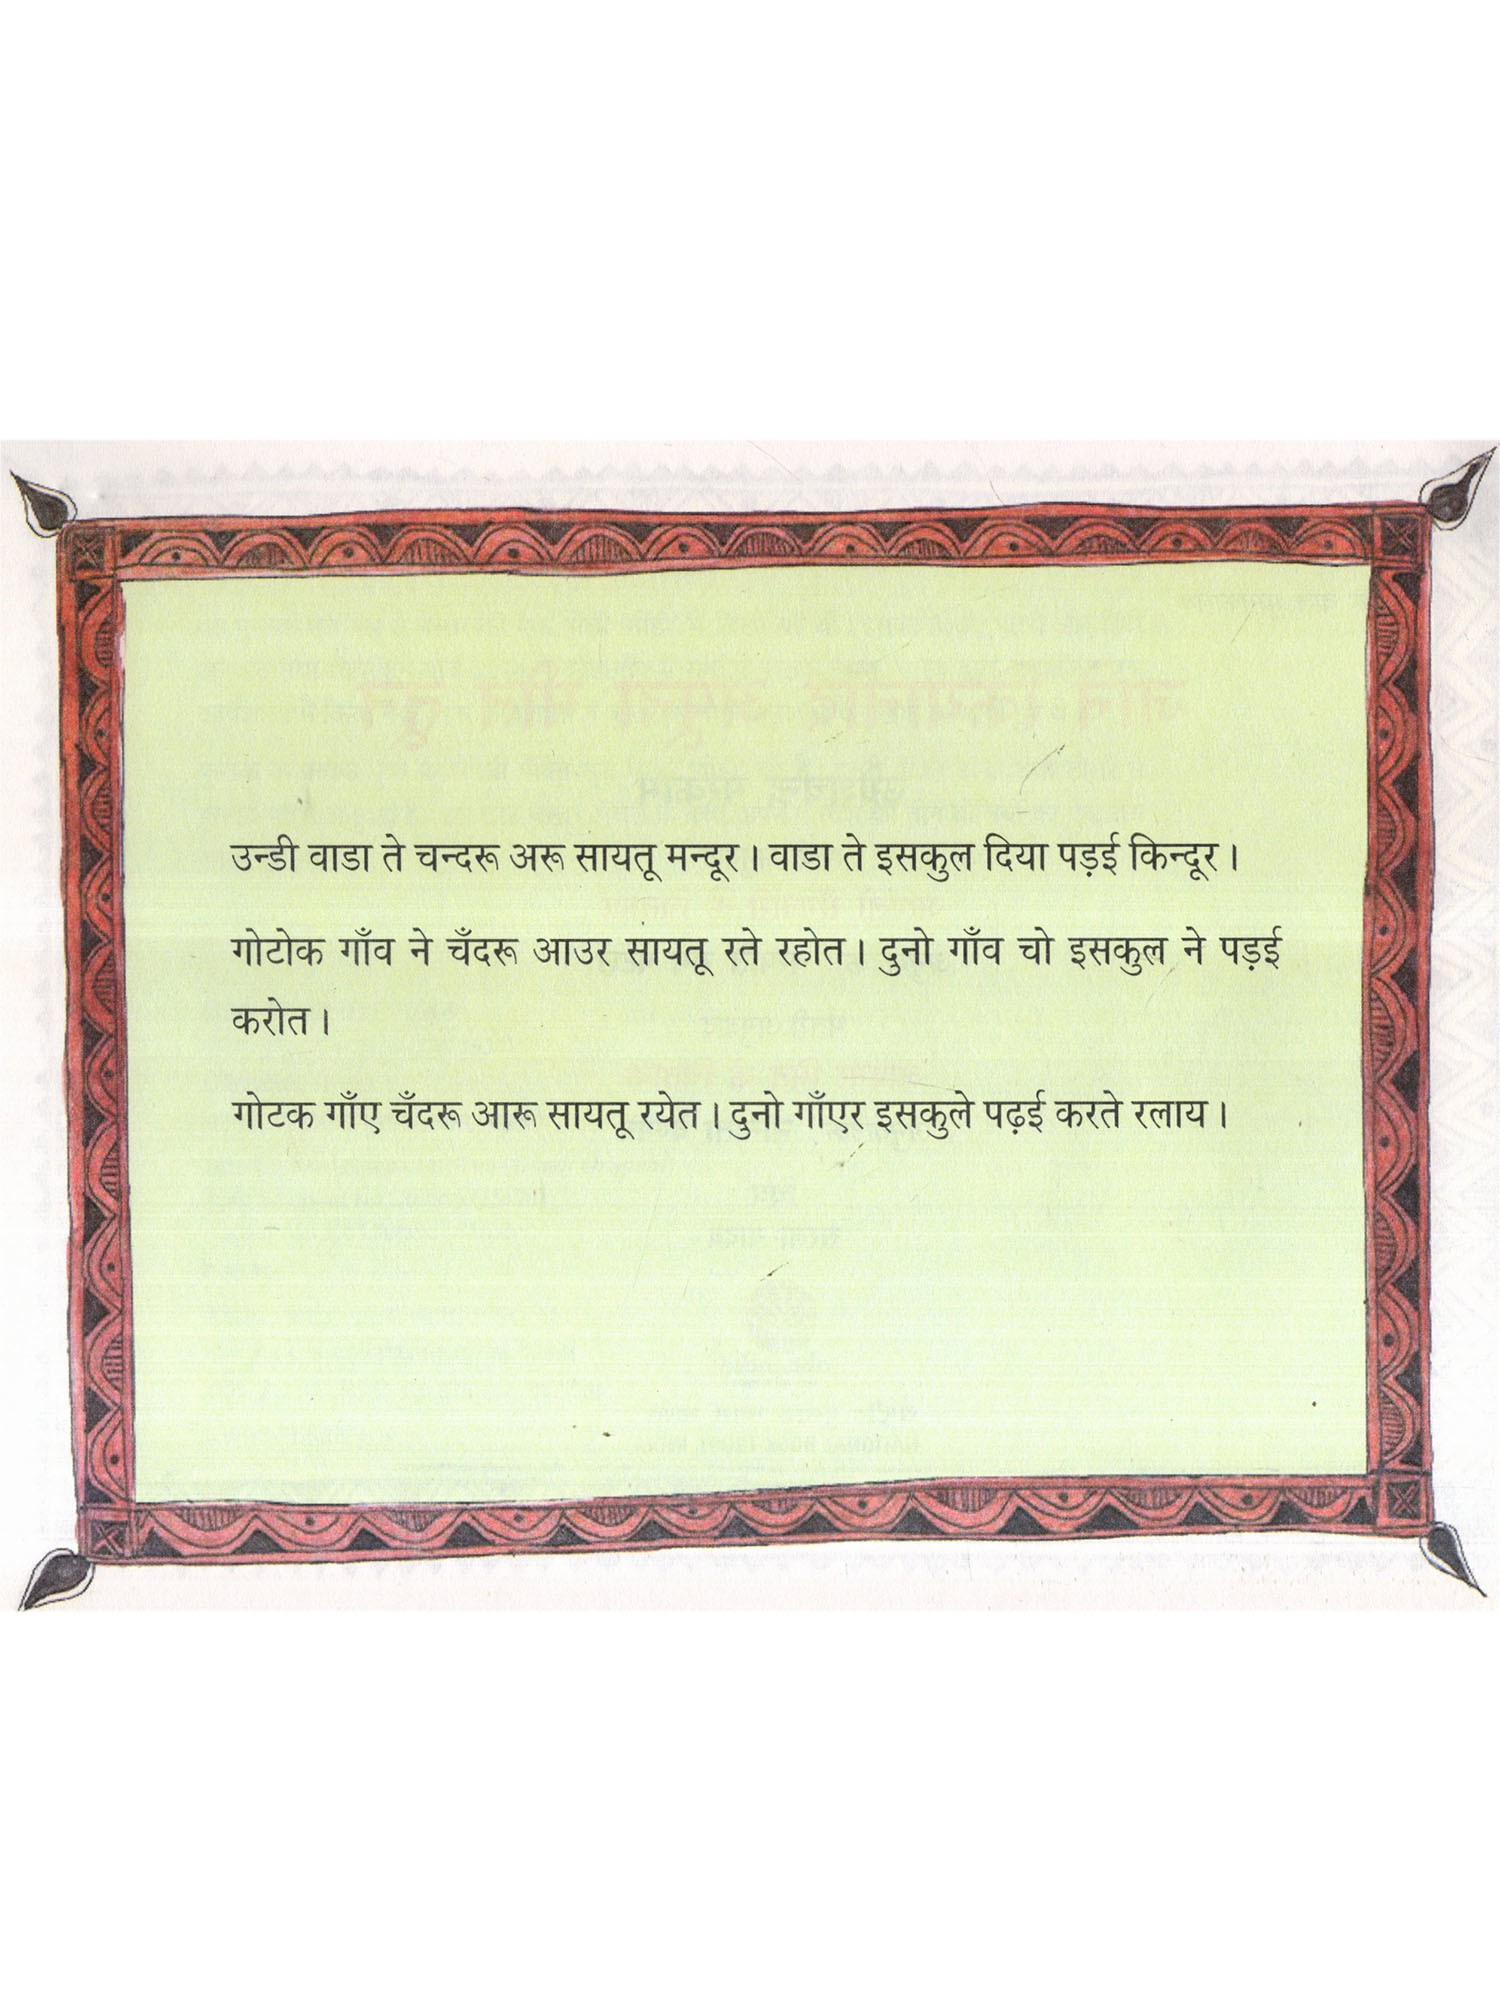 उन्डी वाडा ते चन्दरू अरू सायतू मन्दूर। वाडा ते इसकुल दिया पड़ई किन्दूर।
गोटोक गाँव ने चँदरू आउर सायतू रते रहोत। दुनो गाँव चो इसकुल ने पड़ई
करोत।
गोटक गाँए चँदरू आरू सायतू रयेत। दुनो गाँएर इसकुले पढ़ई करते रलाय।